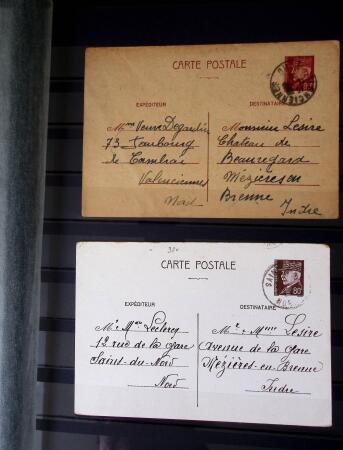 CARTE POSTALE
EXPÉDITEUR
Mme Veuve Degardin
73 Faubourg
de Cambrai
Valenciennes
Nord
DESTINATAIRE
Monsieur Lesire
Château de
Beauregard
Mézières en
Brenne
Indre
CARTE POSTALE
80c
EXPÉDITEUR
Mr & Mme Leclercq
12 rue de la gare
Saint-du-Nord
Nord
DESTINATAIRE
Mr & Mme Lesire
Avenue de la gare
Mézières-en-Brenne
Indre